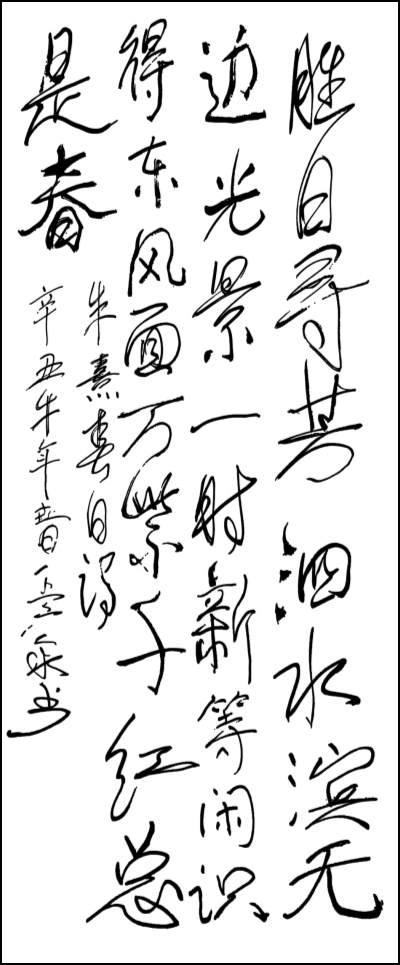 胜日寻芳泗水滨无
边光景一时新等闲识
得东风面万紫千红总
是春
朱熹春日得
辛丑牛年春